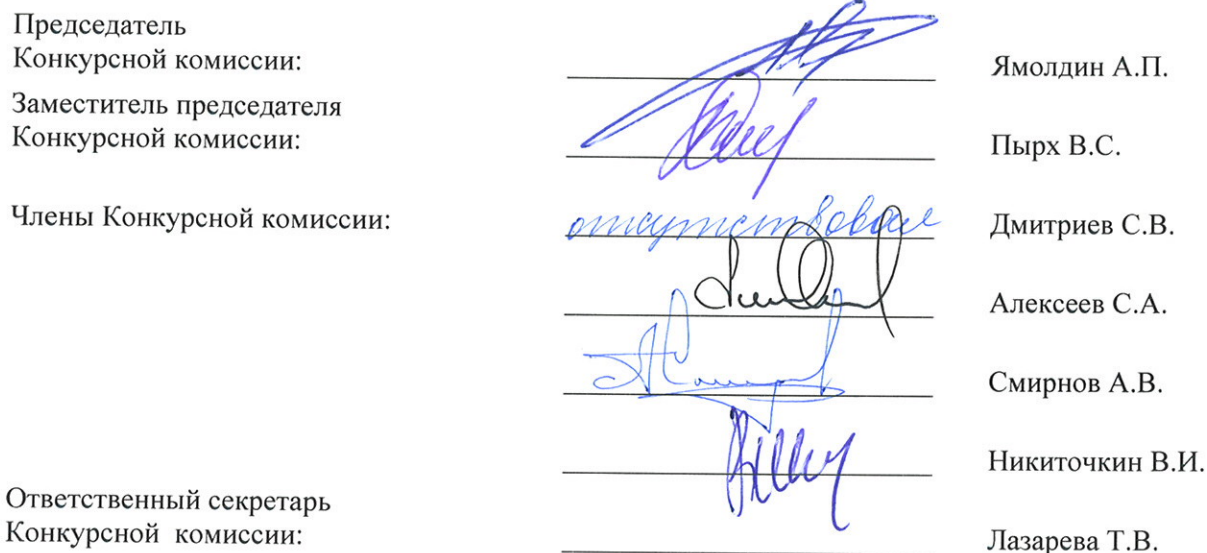 Председатель
Конкурсной комиссии:
Ямолдин А.П.
Заместитель председателя
Конкурсной комиссии:
Пырх В.С.
Члены Конкурсной комиссии:
отсутствовал
Дмитриев С.В.
Алексеев С.А.
Смирнов А.В.
Никиточкин В.И.
Ответственный секретарь
Конкурсной комиссии:
Лазарева Т.В.